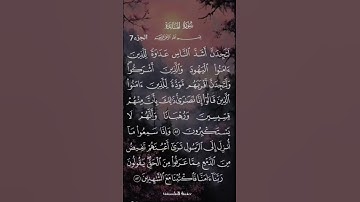 سُورَةُ المَائِدَة
الجزء 7
لَتَجِدَنَّ أَشَدَّ النَّاسِ عَدَاوَةً لِلَّذِينَ
ءَامَنُوا الْيَهُودَ وَالَّذِينَ أَشْرَكُوا
وَلَتَجِدَنَّ أَقْرَبَهُم مَّوَدَّةً لِّلَّذِينَ ءَامَنُوا
الَّذِينَ قَالُوا إِنَّا نَصَارَىٰ ذَٰلِكَ بِأَنَّ مِنْهُمْ
قِسِّيسِينَ وَرُهْبَانًا وَأَنَّهُمْ لَا
يَسْتَكْبِرُونَ ۝ وَإِذَا سَمِعُوا مَا
أُنزِلَ إِلَى الرَّسُولِ تَرَىٰ أَعْيُنَهُمْ تَفِيضُ
مِنَ الدَّمْعِ مِمَّا عَرَفُوا مِنَ الْحَقِّ يَقُولُونَ
رَبَّنَا ءَامَنَّا فَاكْتُبْنَا مَعَ الشَّاهِدِينَ ۝